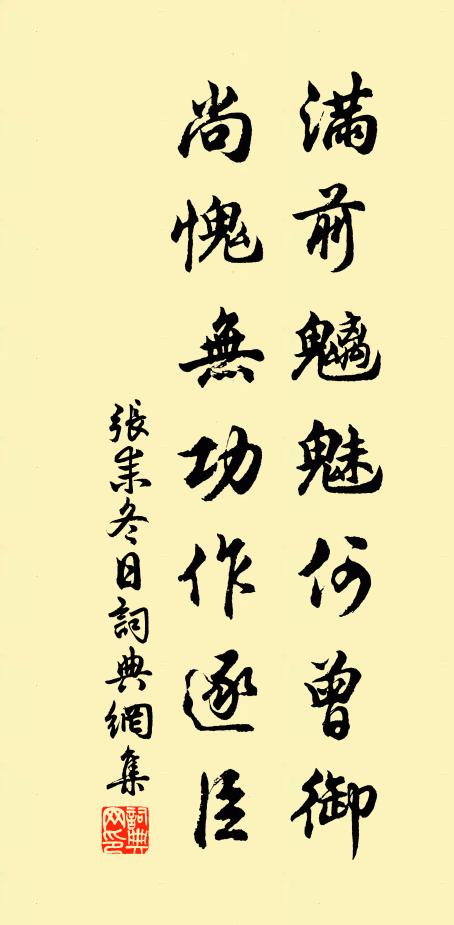 滿前魑魅何曾御
尚愧無功作逐臣
張耒冬日詞典網集
詞典网印